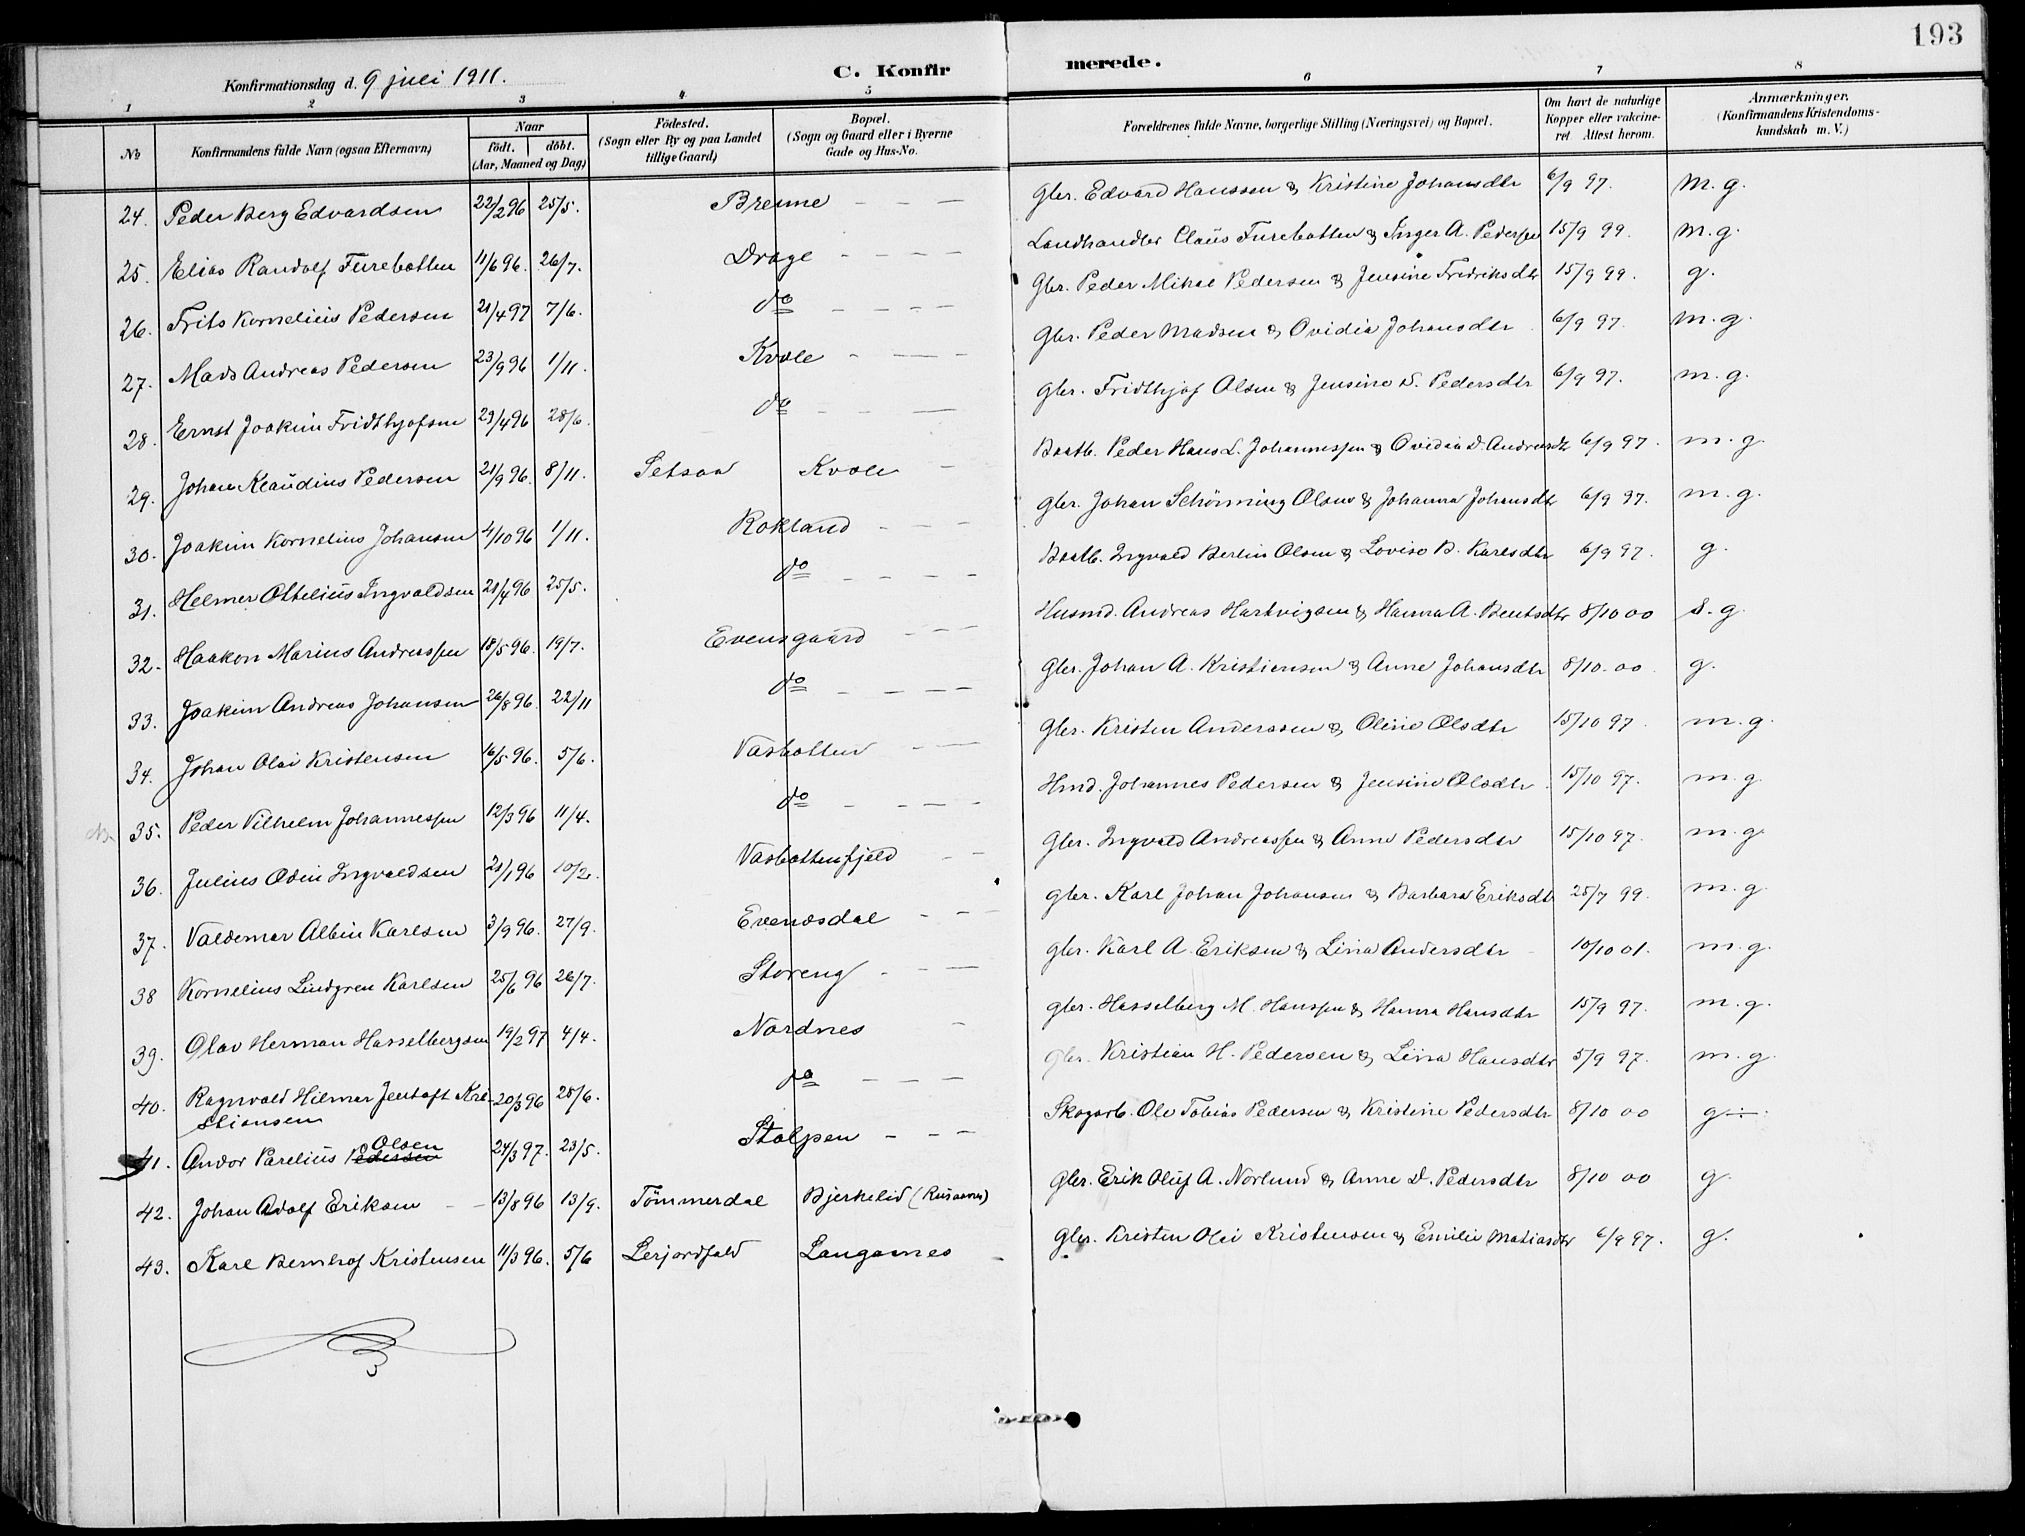 193
Konfirmationsdag d. 9 juli 1911. C. Konfirmerede.
1 2 3 4 5 6 7 8
No Konfirmandens fulde Navn (ogsaa Efternavn) Naar født. døbt. (Aar, Maaned og Dag) Fødested. (Sogn eller By og paa Landet tillige Gaard) Bopæl. (Sogn og Gaard eller i Byerne Gade og Hus-No. Forældrenes fulde Navne, borgerlige Stilling (Næringsvei) og Bopæl. Om havt de naturlige Kopper eller vakcineret Attest herom. Anmærkninger. (Konfirmandens Kristendomskundskab m. V.)
24. Peder Berg Edvardsen 22/2 96 25/5. Breime Gbr. Edvard Hanssen & Kristine Johansdtr 6/9 97. M. g.
25. Elias Randolf Furebotten 11/6 96. 26/7. Drage Landhandler Claus Furebotten & Inger A. Pedersen 15/9 99. m. g.
26. Frits Kornelius Pedersen 21/4 97 7/6. do Gbr. Peder Mikal Pedersen & Jensine Fredriksdtr 15/9 99. g.
27. Mads Andreas Pedersen 23/9 96 1/11. Kvæle Gbr. Peder Madsen & Ovidia Johansdtr 6/9 97. m. g.
28. Ernst Joakim Fridthjofsen 29/4 96 28/6. do Gbr. Fridthjof Olsen & Jensine D. Pedersdtr 6/9 97. m. g.
29. Johan Klaudius Pedersen 21/9 96. 8/11. Setsaa Kvæle Baatb. Peder Hans L. Johannessen & Ovidia D. Andreasdtr 6/9 97. m. g.
30. Joakim Kornelius Johansen 4/10 96 1/11. Rokland Gbr. Johan Schönning Olsen & Johanna Johansdtr 6/9 97. m. g.
31. Helmer Ottelius Ingvaldsen 21/4 96 25/5. do Baatb. Ingvald Berlin Olsen & Lovise B. Karlsdtr 6/9 97. g.
32. Haakon Marius Andreassen 18/5 96. 19/7. Evensgaard Husmd. Andreas Hartvigsen & Hanna A. Bentsdtr 8/10 00 s. g.
33. Joakim Andreas Johansen 26/8 96. 22/11 do Gbr. Johan A. Kristiansen & Anne Johansdtr 8/10. 00 g.
34. Johan Olai Kristensen 16/5 96. 5/6. Vasbotten Gbr. Kristen Anderssen & Oline Olsdtr 15/10 97. m. g.
35. Peder Vilhelm Johannessen 12/3 96 11/4. do Hmd. Johannes Pedersen & Jensine Olsdtr 15/10 97. m. g.
36. Julius Odin Ingvaldsen 21/1 96 10/2. Vasbottenfjeld Gbr. Ingvald Andreassen & Anne Pedersdtr 15/10 97. m. g.
37. Valdemar Albin Karlsen 3/9 96. 27/9. Evensdal Gbr. Karl Johan Johansen & Barbara Eriksdtr 25/7 99. m. g.
38 Kornelius Lindgren Karlsen 25/6 96 26/7. Storeng Gbr. Karl A. Eriksen & Lina Andersdtr 10/10 01. m. g.
39. Olav Herman Hasselbergsen 19/2 97 4/4. Nordnes Gbr. Hasselberg M. Hanssen & Hanna Hansdtr 15/9 97. m. g.
40. Ragnvald Hilmar Jentoft Kristiansen 20/3 96 28/6. do Gbr. Kristian H. Pedersen & Lina Hansdtr 5/9 97. m. g.
41. Andor Parelius Pedersen Olsen 24/3 97. 23/5. Stolpen Skogarb. Ole Tobias Pedersen & Kristine Pedersdtr 8/10 00 g
42. Johan Adolf Eriksen 13/8 96 13/9. Tömmerdal Bjerkelid (Rusaanes) Gbr. Erik Oluf A. Norlund & Anne D. Pedersdtr 8/10 00 g.
43. Karl Bernhof Kristensen 11/3 96. 5/6 Lerjordfald Langsnes Gbr. Kristen Olai Kristensen & Emilie Matiasdtr 6/9 97. g.